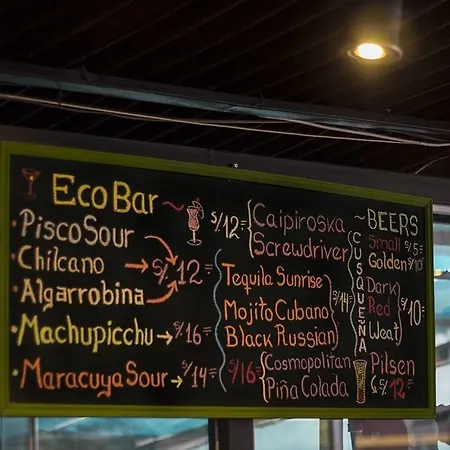 Eco Bar
Pisco Sour
Chilcano
Algarrobina
S/. 12
Machupicchu S/16
Maracuya Sour S/14
S/12 Caipiroska
Screwdriver
Tequila Sunrise
Mojito Cubano
Black Russian
S/14
S/16 Cosmopolitan
Piña Colada
~BEERS
CUSQUEÑA
Small S/5
Golden S/10
Dark
Red
Weat
S/10
Pilsen
S/12